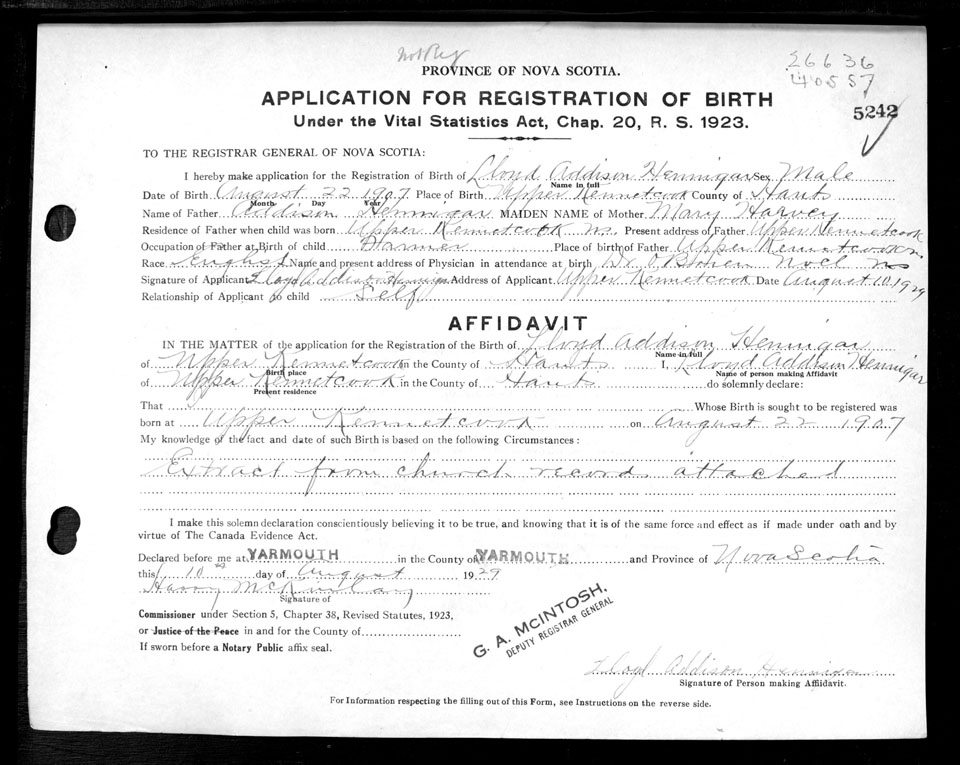 Not Reg
26636
40557
PROVINCE OF NOVA SCOTIA.
APPLICATION FOR REGISTRATION OF BIRTH
5242
Under the Vital Statistics Act, Chap. 20, R. S. 1923.
TO THE REGISTRAR GENERAL OF NOVA SCOTIA:
I hereby make application for the Registration of Birth of Lloyd Addison Hennigar Sex Male
Name in full
Date of Birth August 22 1907 Place of Birth Upper Kennetcook County of Hants
Month Day Year
Name of Father Addison Hennigar MAIDEN NAME of Mother Mary Harvey
Residence of Father when child was born Upper Kennetcook N.S. Present address of Father Upper Kennetcook
Occupation of Father at Birth of child Farmer Place of birth of Father Upper Kennetcook
Race English Name and present address of Physician in attendance at birth Dr. O'Brien Noel NS
Signature of Applicant Lloyd Addison Hennigar Address of Applicant Upper Kennetcook Date August 10 1929
Relationship of Applicant to child Self
AFFIDAVIT
IN THE MATTER of the application for the Registration of the Birth of Lloyd Addison Hennigar
Name in full
of Upper Kennetcook in the County of Hants I, Lloyd Addison Hennigar
Birth place Name of person making Affidavit
of Upper Kennetcook in the County of Hants do solemnly declare:
Present residence
That Whose Birth is sought to be registered was
born at Upper Kennetcook on August 22 1907
My knowledge of the fact and date of such Birth is based on the following Circumstances:
Extract from church records attached
I make this solemn declaration conscientiously believing it to be true, and knowing that it is of the same force and effect as if made under oath and by
virtue of The Canada Evidence Act.
Declared before me at YARMOUTH in the County of YARMOUTH and Province of Nova Scotia
this 10th day of August 1929
Harry
Signature of
Commissioner under Section 5, Chapter 38, Revised Statutes, 1923,
or Justice of the Peace in and for the County of
If sworn before a Notary Public affix seal.
G. A. McINTOSH,
DEPUTY REGISTRAR GENERAL
Lloyd Addison Hennigar
Signature of Person making Affidavit.
For Information respecting the filling out of this Form, see Instructions on the reverse side.